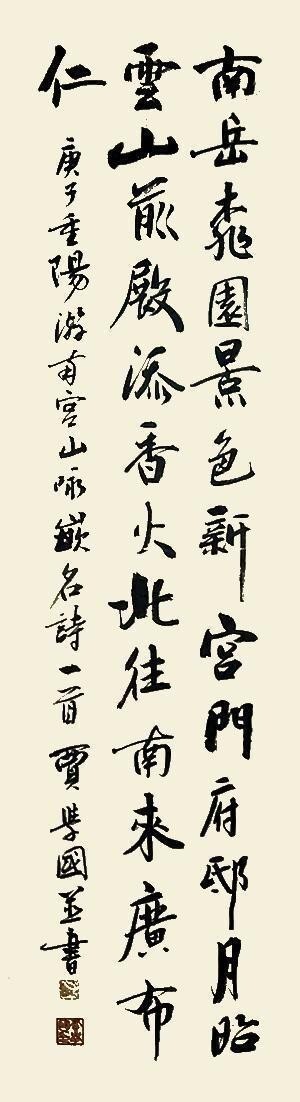 南岳桃園景色新宮門府邸月昭
雲山前殿添香火北往南來廣布
仁
庚子重陽游南宮山咏嵌名詩一首 賈學國並書